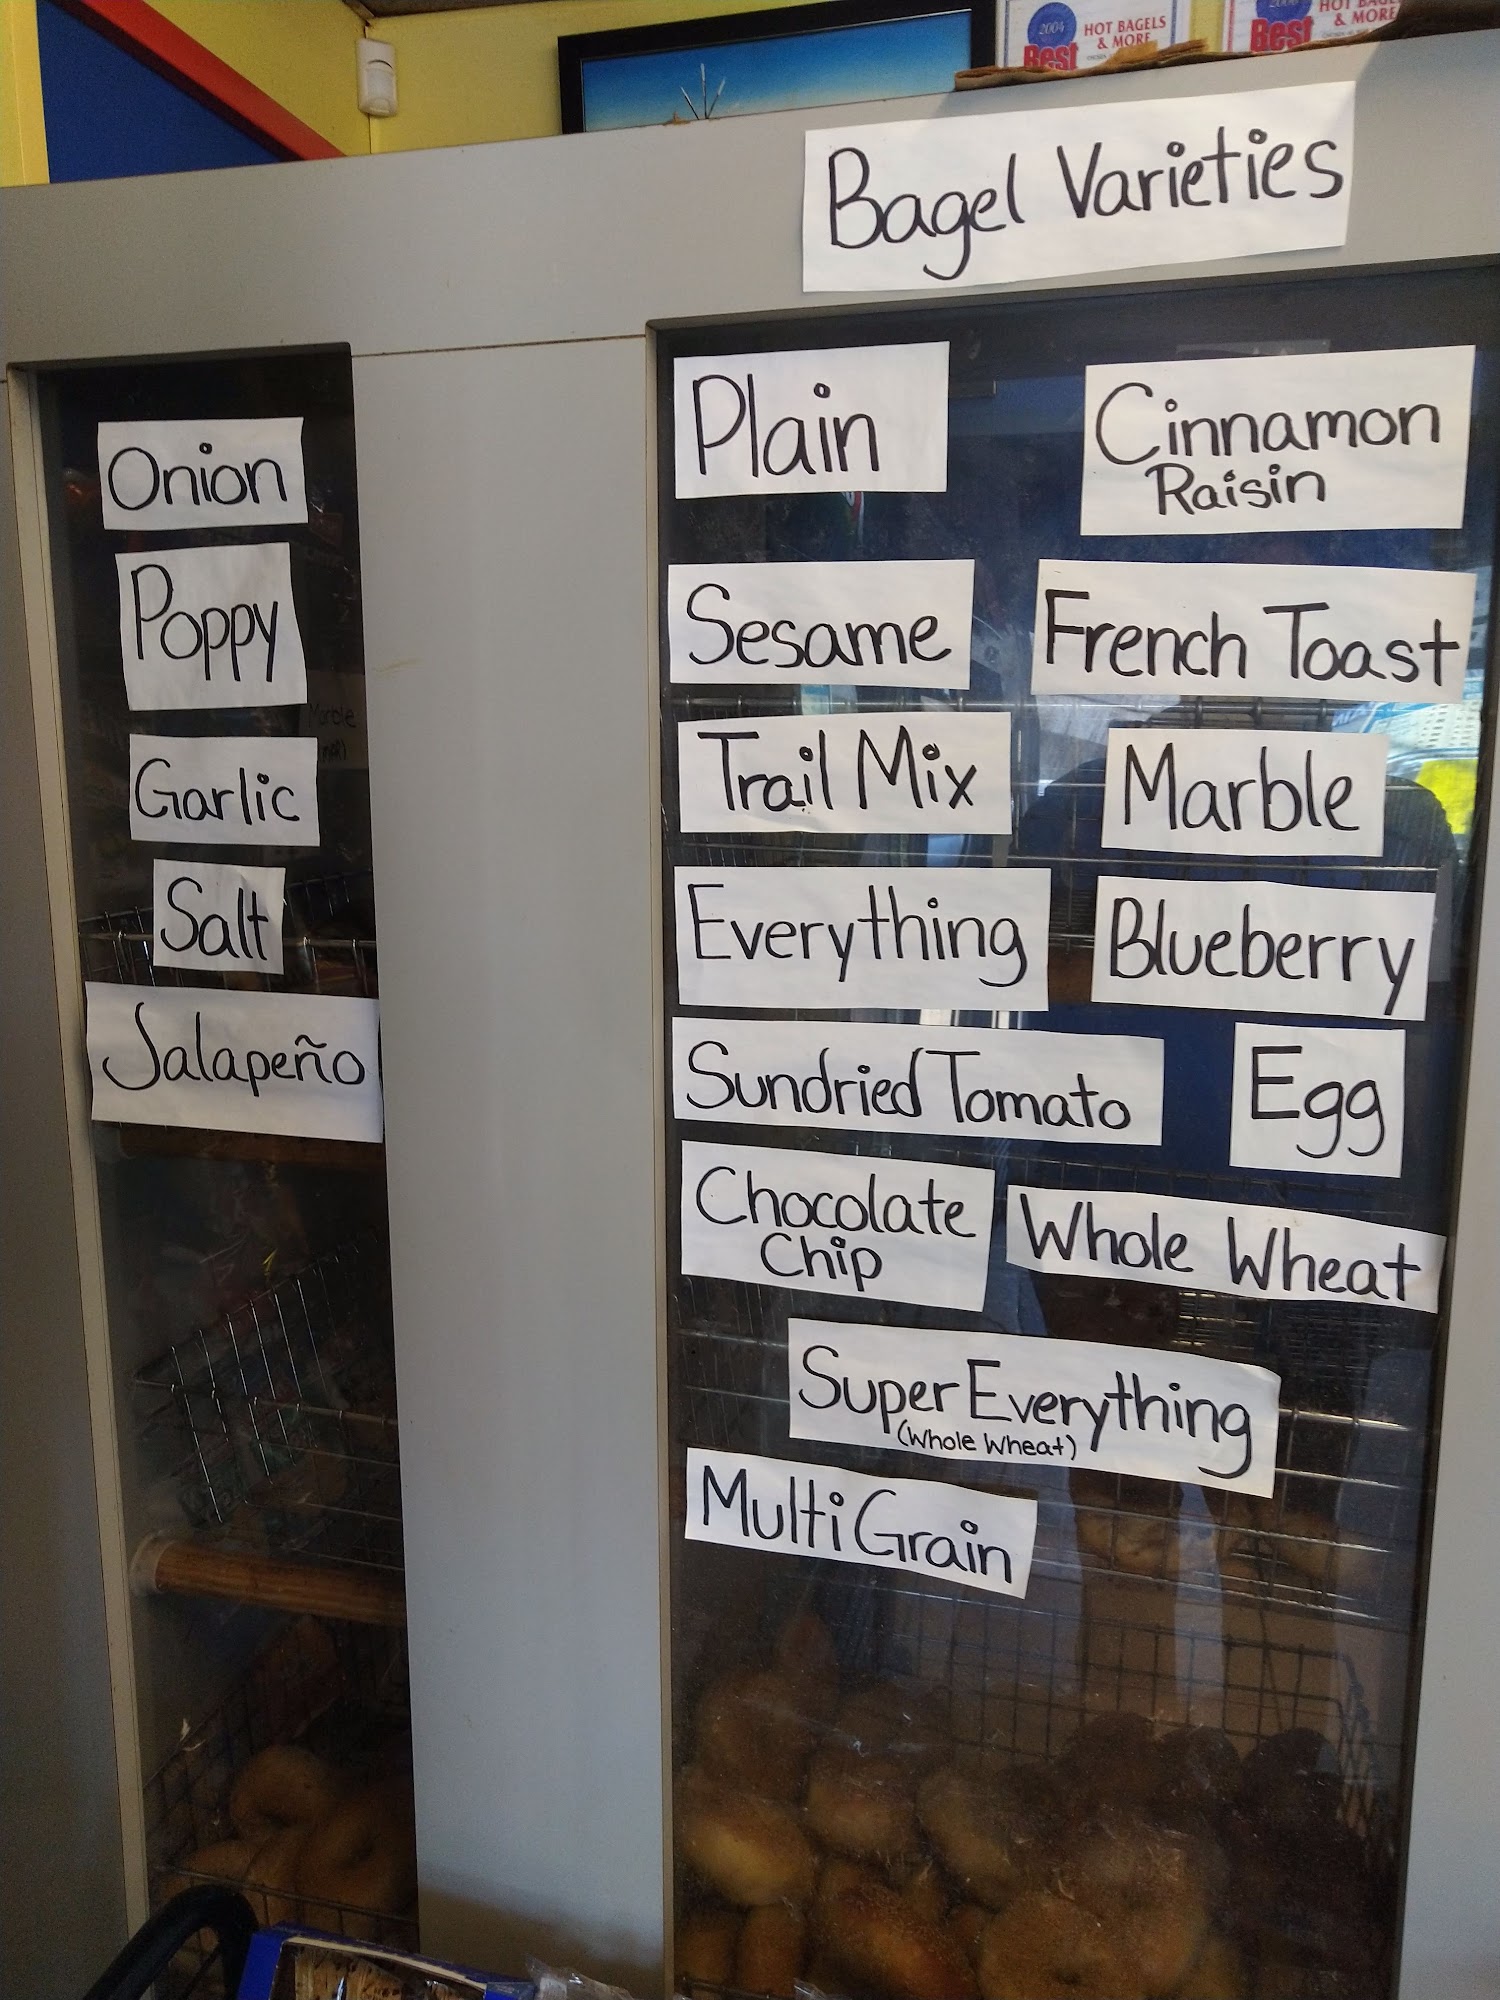 2004
Best
HOT BAGELS
& MORE
Best
& MORE
Bagel Varieties
Onion
Poppy
Garlic
Salt
Jalapeño
Plain
Cinnamon
Raisin
Sesame
French Toast
Trail Mix
Marble
Everything
Blueberry
Sundried Tomato
Egg
Chocolate
Chip
Whole Wheat
Super Everything
(Whole Wheat)
Multi Grain